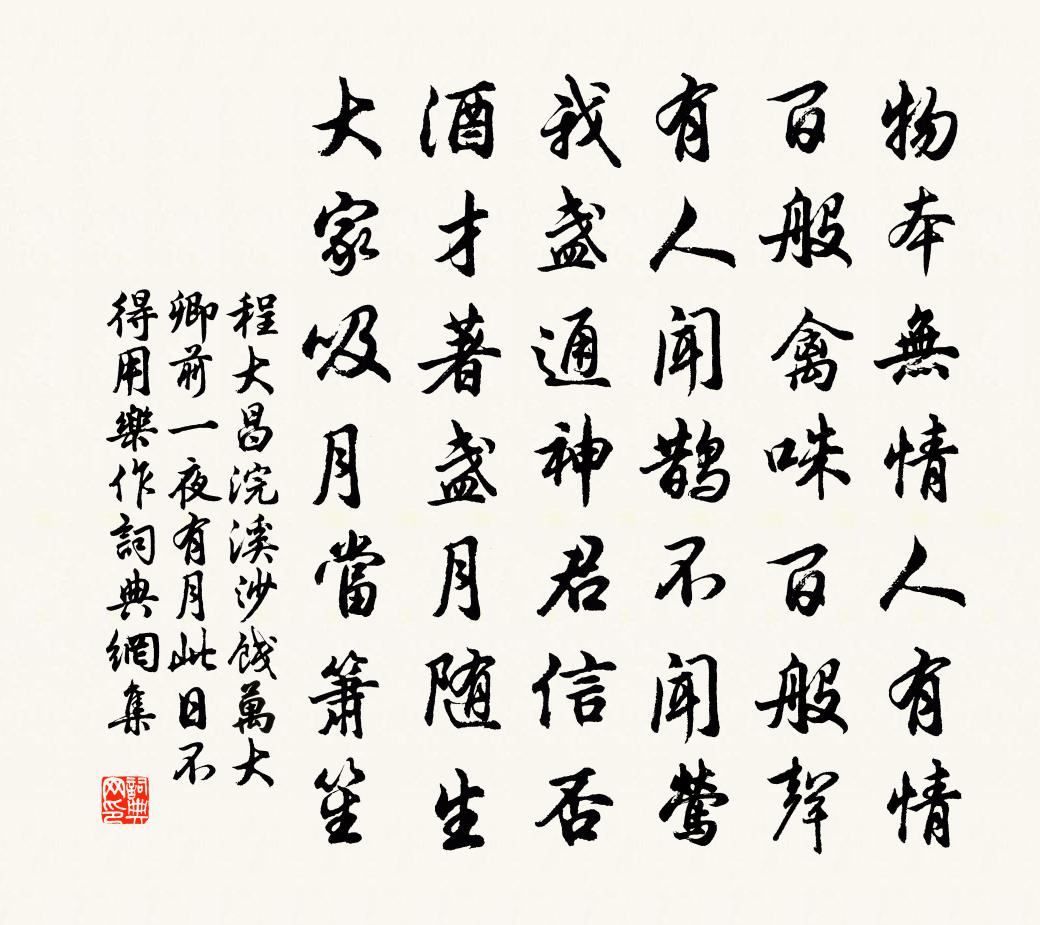 物本無情人有情
百般禽咮百般聲
有人聞鵲不聞鶯
我盞通神君信否
酒才著盞月随生
大家吸月當簫笙
程大昌浣溪沙餞萬大
卿前一夜有月此日不
得用樂作詞典網集
詞典
网印